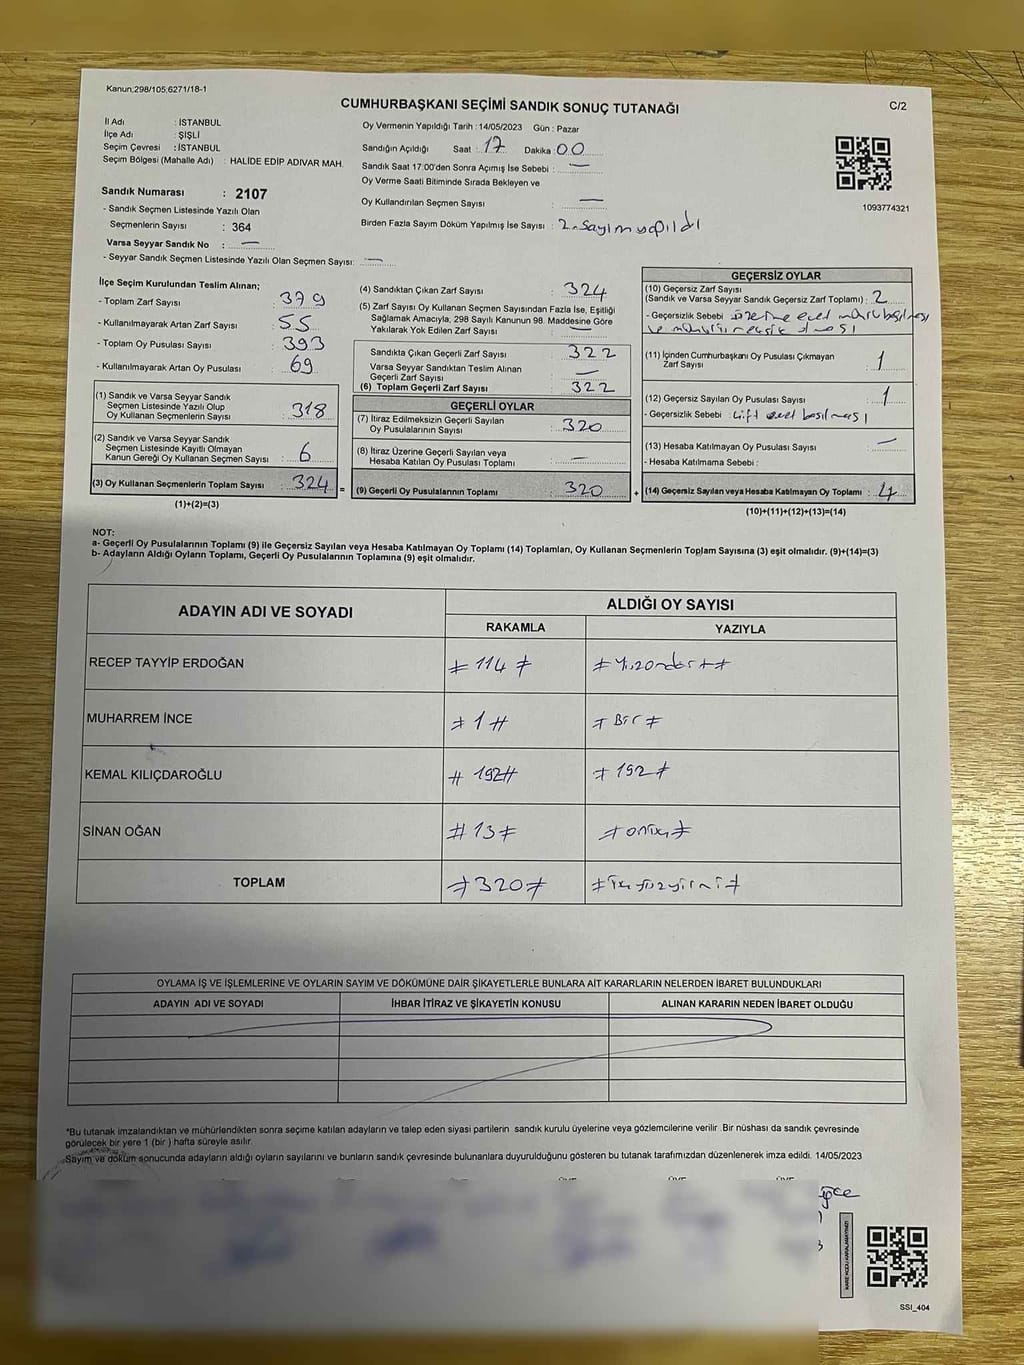 Kanun;298/105,6271/18-1
CUMHURBAŞKANI SEÇİMİ SANDIK SONUÇ TUTANAĞI
C/2
İl Adı : İSTANBUL
İlçe Adı : ŞİŞLİ
Seçim Çevresi : İSTANBUL
Seçim Bölgesi (Mahalle Adı) : HALİDE EDİP ADIVAR MAH.
Sandık Numarası : 2107
- Sandık Seçmen Listesinde Yazılı Olan
Seçmenlerin Sayısı : 364
Varsa Seyyar Sandık No : —
- Seyyar Sandık Seçmen Listesinde Yazılı Olan Seçmen Sayısı: —
Oy Vermenin Yapıldığı Tarih : 14/05/2023 Gün : Pazar
Sandığın Açıldığı Saat : 17 Dakika : 00
Sandık Saat 17:00'den Sonra Açımış İse Sebebi : —
Oy Verme Saati Bitiminde Sırada Bekleyen ve
Oy Kullandırılan Seçmen Sayısı : —
Birden Fazla Sayım Döküm Yapılmış İse Sayısı : 2. Sayım yapıldı
1093774321
İlçe Seçim Kurulundan Teslim Alınan;
- Toplam Zarf Sayısı : 379
- Kullanılmayarak Artan Zarf Sayısı : 55
- Toplam Oy Pusulası Sayısı : 393
- Kullanılmayarak Artan Oy Pusulası : 69
(1) Sandık ve Varsa Seyyar Sandık
Seçmen Listesinde Yazılı Olup
Oy Kullanan Seçmenlerin Sayısı : 318
(2) Sandık ve Varsa Seyyar Sandık
Seçmen Listesinde Kayıtlı Olmayan
Kanun Gereği Oy Kullanan Seçmen Sayısı : 6
(3) Oy Kullanan Seçmenlerin Toplam Sayısı : 324 =
(1)+(2)=(3)
(4) Sandıktan Çıkan Zarf Sayısı : 324
(5) Zarf Sayısı Oy Kullanan Seçmen Sayısından Fazla İse, Eşitliği
Sağlamak Amacıyla, 298 Sayılı Kanunun 98. Maddesine Göre
Yakılarak Yok Edilen Zarf Sayısı : —
Sandıkta Çıkan Geçerli Zarf Sayısı : 322
Varsa Seyyar Sandıktan Teslim Alınan
Geçerli Zarf Sayısı : —
(6) Toplam Geçerli Zarf Sayısı : 322
GEÇERLİ OYLAR
(7) İtiraz Edilmeksizin Geçerli Sayılan
Oy Pusulalarının Sayısı : 320
(8) İtiraz Üzerine Geçerli Sayılan veya
Hesaba Katılan Oy Pusulası Toplamı : —
(9) Geçerli Oy Pusulalarının Toplamı : 320 +
GEÇERSİZ OYLAR
(10) Geçersiz Zarf Sayısı
(Sandık ve Varsa Seyyar Sandık Geçersiz Zarf Toplamı) : 2
- Geçersizlik Sebebi : üzerine evet mührü basılması
(11) İçinden Cumhurbaşkanı Oy Pusulası Çıkmayan
Zarf Sayısı : 1
(12) Geçersiz Sayılan Oy Pusulası Sayısı : 1
- Geçersizlik Sebebi : Çift evet basılması
(13) Hesaba Katılmayan Oy Pusulası Sayısı : —
- Hesaba Katılmama Sebebi :
(14) Geçersiz Sayılan veya Hesaba Katılmayan Oy Toplamı : 4
(10)+(11)+(12)+(13)=(14)
NOT:
a- Geçerli Oy Pusulalarının Toplamı (9) ile Geçersiz Sayılan veya Hesaba Katılmayan Oy Toplamı (14) Toplamları, Oy Kullanan Seçmenlerin Toplam Sayısına (3) eşit olmalıdır. (9)+(14)=(3)
b- Adayların Aldığı Oyların Toplamı, Geçerli Oy Pusulalarının Toplamına (9) eşit olmalıdır.
ADAYIN ADI VE SOYADI
ALDIĞI OY SAYISI
RAKAMLA YAZIYLA
RECEP TAYYİP ERDOĞAN ≠ 114 ≠ ≠ Yüzondört ≠
MUHARREM İNCE ≠ 1 # ≠ Bir ≠
KEMAL KILIÇDAROĞLU # 192# ≠ 192 ≠
SİNAN OĞAN # 13 ≠ ≠ onüç ≠
TOPLAM ≠ 320 ≠ ≠ üçyüzyirmi ≠
OYLAMA İŞ VE İŞLEMLERİNE VE OYLARIN SAYIM VE DÖKÜMÜNE DAİR ŞİKAYETLERLE BUNLARA AİT KARARLARIN NELERDEN İBARET BULUNDUKLARI
ADAYIN ADI VE SOYADI İHBAR İTİRAZ VE ŞİKAYETİN KONUSU ALINAN KARARIN NEDEN İBARET OLDUĞU
*Bu tutanak imzalandıktan ve mühürlendikten sonra seçime katılan adayların ve talep eden siyasi partilerin sandık kurulu üyelerine veya gözlemcilerine verilir. Bir nüshası da sandık çevresinde
görülecek bir yere 1 (bir ) hafta süreyle asılır.
Sayım ve döküm sonucunda adayların aldığı oyların sayılarını ve bunların sandık çevresinde bulunanlara duyurulduğunu gösteren bu tutanak tarafımızdan düzenlenerek imza edildi. 14/05/2023
KARE KODU KARALAMAYINIZ!
SSI_404